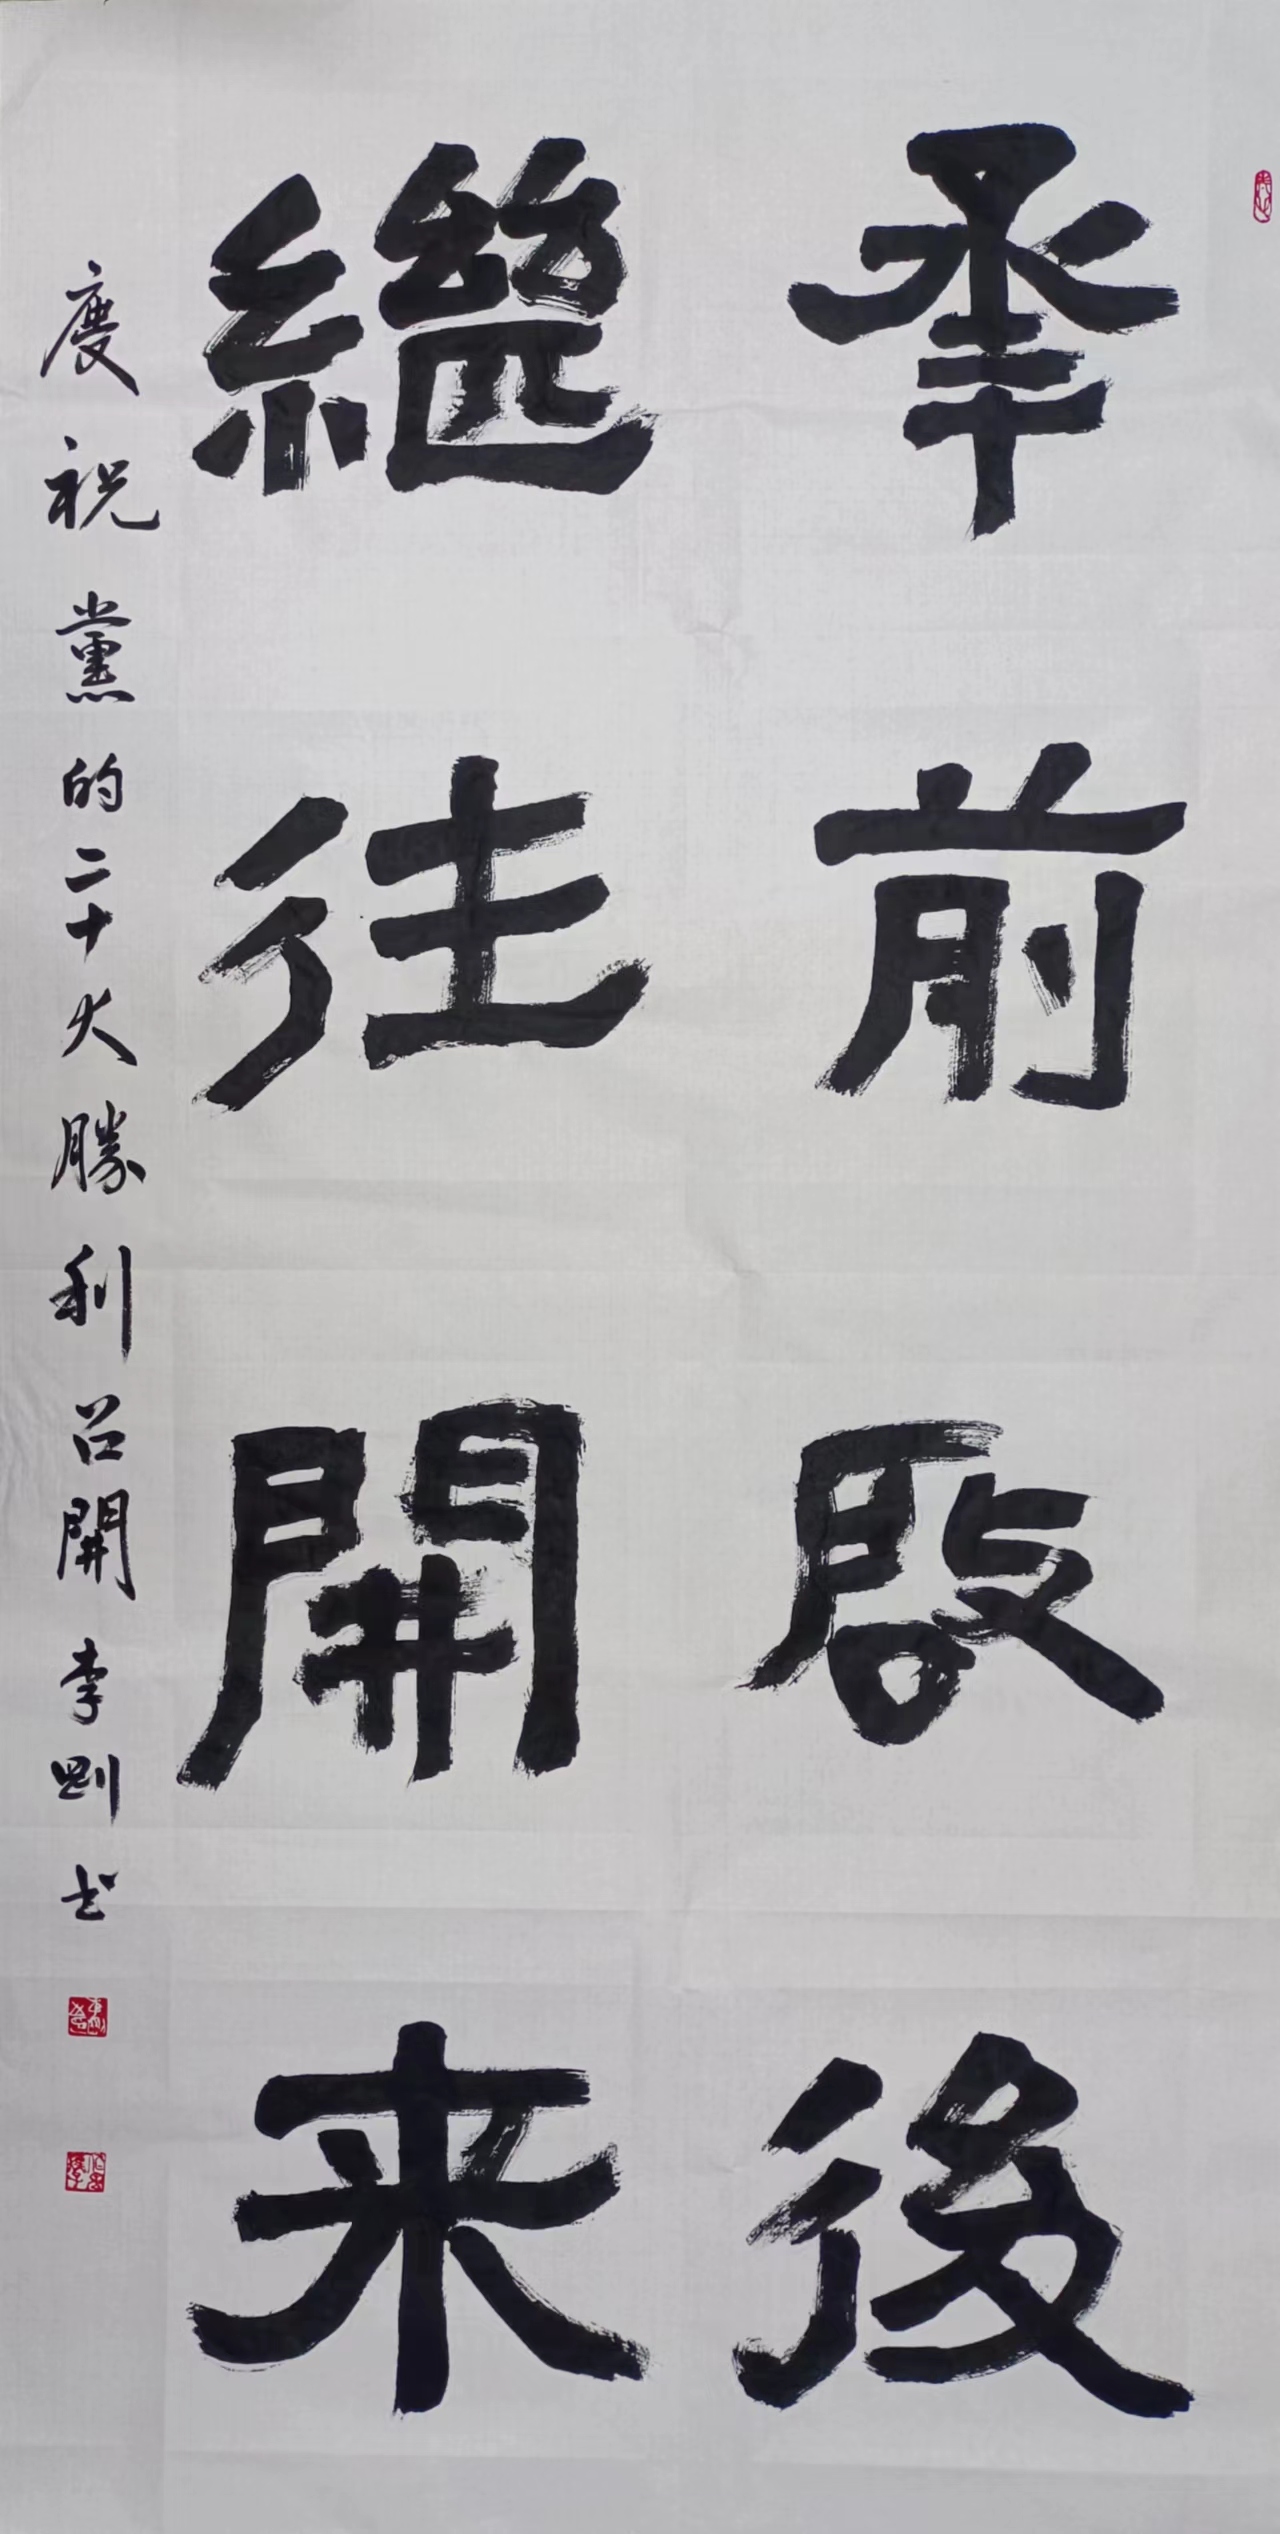 承前啟後
繼往開来
慶祝黨的二十大勝利召開李剛书